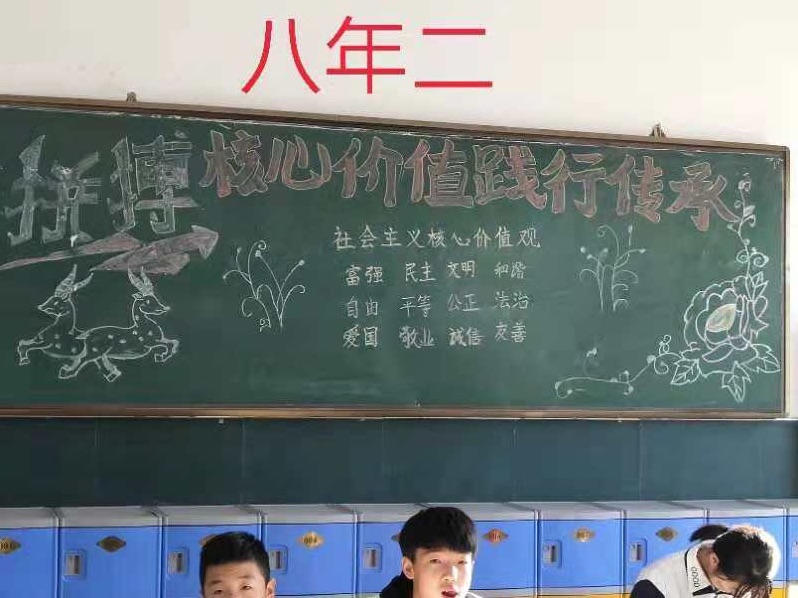 八年二
拼搏 核心价值践行传承
社会主义核心价值观
富强 民主 文明 和谐
自由 平等 公正 法治
爱国 敬业 诚信 友善